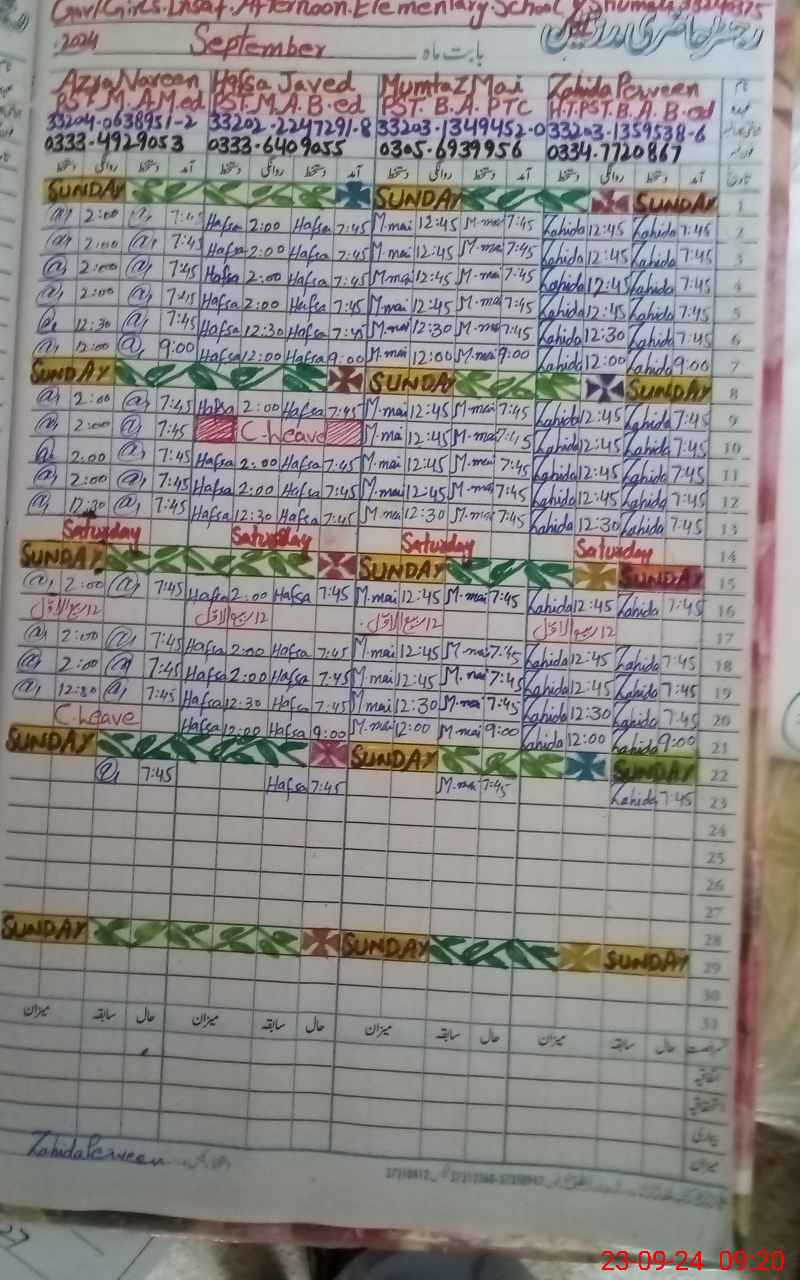 Gov/Girls. Insaf. Afternoon. Elementary. School
2024 September بابت ماہ
Azra Nareen Hafsa Javed Mumtaz Mai Zahida Perveen نام
PST. M. A M.ed PST. M. A. B. ed PST. B. A. PTC H.T.PST. B. A. B. ed عہدہ
33204-0638951-2 33202-2247291-8 33203-1349452-0 33203-1359538-6
0333-4929053 0333-6409055 0305-6939956 0334-7720867
دستخط روانگی دستخط آمد دستخط روانگی دستخط آمد دستخط روانگی دستخط آمد دستخط روانگی دستخط آمد تاریخ
SUNDAY SUNDAY SUNDAY 1
2:00 7:45 Hafsa 2:00 Hafsa 7:45 M.mai 12:45 M.mai 7:45 Zahida 12:45 Zahida 7:45 2
2:00 7:45 Hafsa 2:00 Hafsa 7:45 M.mai 12:45 M.mai 7:45 Zahida 12:45 Zahida 7:45 3
2:00 7:45 Hafsa 2:00 Hafsa 7:45 M.mai 12:45 M.mai 7:45 Zahida 12:45 Zahida 7:45 4
2:00 7:45 Hafsa 2:00 Hafsa 7:45 M.mai 12:45 M.mai 7:45 Zahida 12:45 Zahida 7:45 5
12:30 7:45 Hafsa 12:30 Hafsa 7:45 M.mai 12:30 M.mai 7:45 Zahida 12:30 Zahida 7:45 6
12:00 9:00 Hafsa 12:00 Hafsa 9:00 M.mai 12:00 M.mai 9:00 Zahida 12:00 Zahida 9:00 7
SUNDAY SUNDAY SUNDAY 8
2:00 7:45 Hafsa 2:00 Hafsa 7:45 M.mai 12:45 M.mai 7:45 Zahida 12:45 Zahida 7:45 9
2:00 7:45 C-Leave M.mai 12:45 M.mai 7:45 Zahida 12:45 Zahida 7:45 10
2:00 7:45 Hafsa 2:00 Hafsa 7:45 M.mai 12:45 M.mai 7:45 Zahida 12:45 Zahida 7:45 11
2:00 7:45 Hafsa 2:00 Hafsa 7:45 M.mai 12:45 M.mai 7:45 Zahida 12:45 Zahida 7:45 12
12:30 7:45 Hafsa 12:30 Hafsa 7:45 M.mai 12:30 M.mai 7:45 Zahida 12:30 Zahida 7:45 13
Saturday Saturday Saturday Saturday 14
SUNDAY SUNDAY SUNDAY 15
2:00 7:45 Hafsa 2:00 Hafsa 7:45 M.mai 12:45 M.mai 7:45 Zahida 12:45 Zahida 7:45 16
12 ربیع الاول 12 ربیع الاول 12 ربیع الاول 12 ربیع الاول 17
2:00 7:45 Hafsa 2:00 Hafsa 7:45 M.mai 12:45 M.mai 7:45 Zahida 12:45 Zahida 7:45 18
2:00 7:45 Hafsa 2:00 Hafsa 7:45 M.mai 12:45 M.mai 7:45 Zahida 12:45 Zahida 7:45 19
12:30 7:45 Hafsa 12:30 Hafsa 7:45 M.mai 12:30 M.mai 7:45 Zahida 12:30 Zahida 7:45 20
C.Leave Hafsa 12:00 Hafsa 9:00 M.mai 12:00 M.mai 9:00 Zahida 12:00 Zahida 9:00 21
SUNDAY SUNDAY SUNDAY 22
7:45 Hafsa 7:45 M.mai 7:45 Zahida 7:45 23
24
25
26
27
28
SUNDAY SUNDAY SUNDAY 29
30
31
میزان سابقہ حال میزان سابقہ حال میزان سابقہ حال میزان سابقہ حال رخصت
اتفاقیہ
استحقاقیہ
بیماری
میزان
Zahida Perveen
23-09-24 09:20